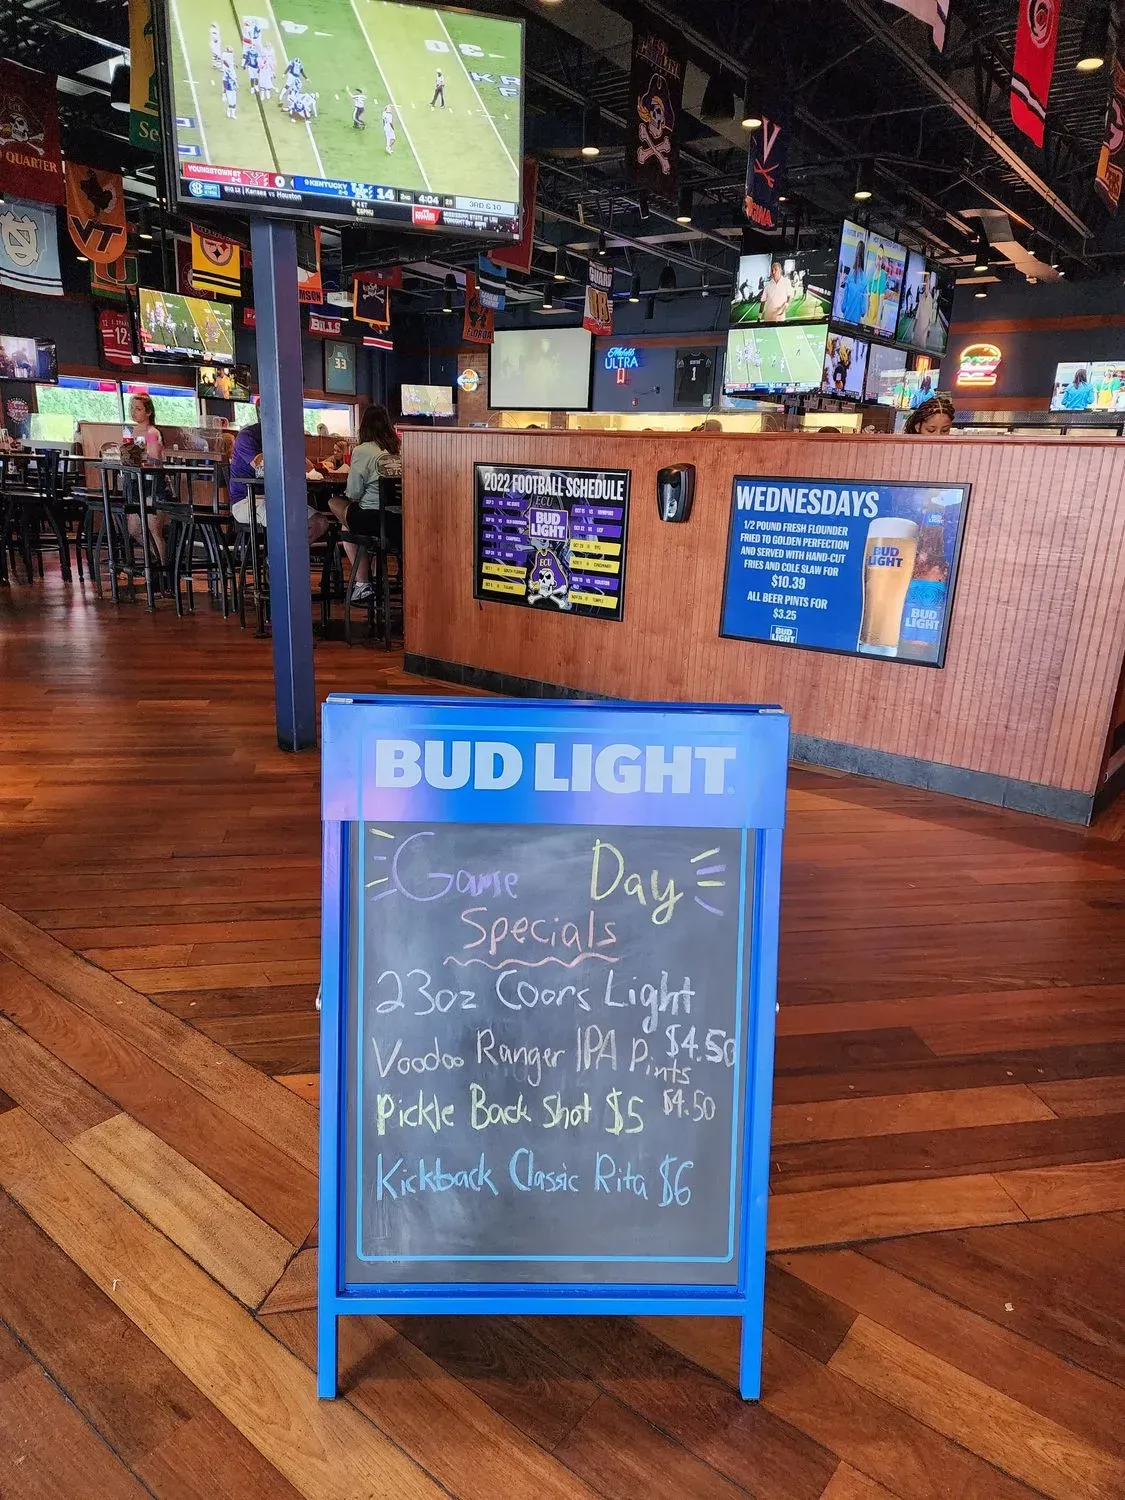 YOUNGSTOWN ST
0
9 KENTUCKY
14
4:04
3RD & 10
BIG 12 | Kansas vs Houston
QUARTER
VT
BILLS
FLORIDA
12
33
ULTRA
1
2022 FOOTBALL SCHEDULE
ECU
BUD
LIGHT
ECU
WEDNESDAYS
1/2 POUND FRESH FLOUNDER
FRIED TO GOLDEN PERFECTION
AND SERVED WITH HAND-CUT
FRIES AND COLE SLAW FOR
$10.39
ALL BEER PINTS FOR
$3.25
BUD
LIGHT
BUD
LIGHT
BUD
LIGHT
BUD LIGHT
Game Day
Specials
23oz Coors Light
$4.50
Voodoo Ranger IPA Pints
$4.50
Pickle Back Shot $5
Kickback Classic Rita $6